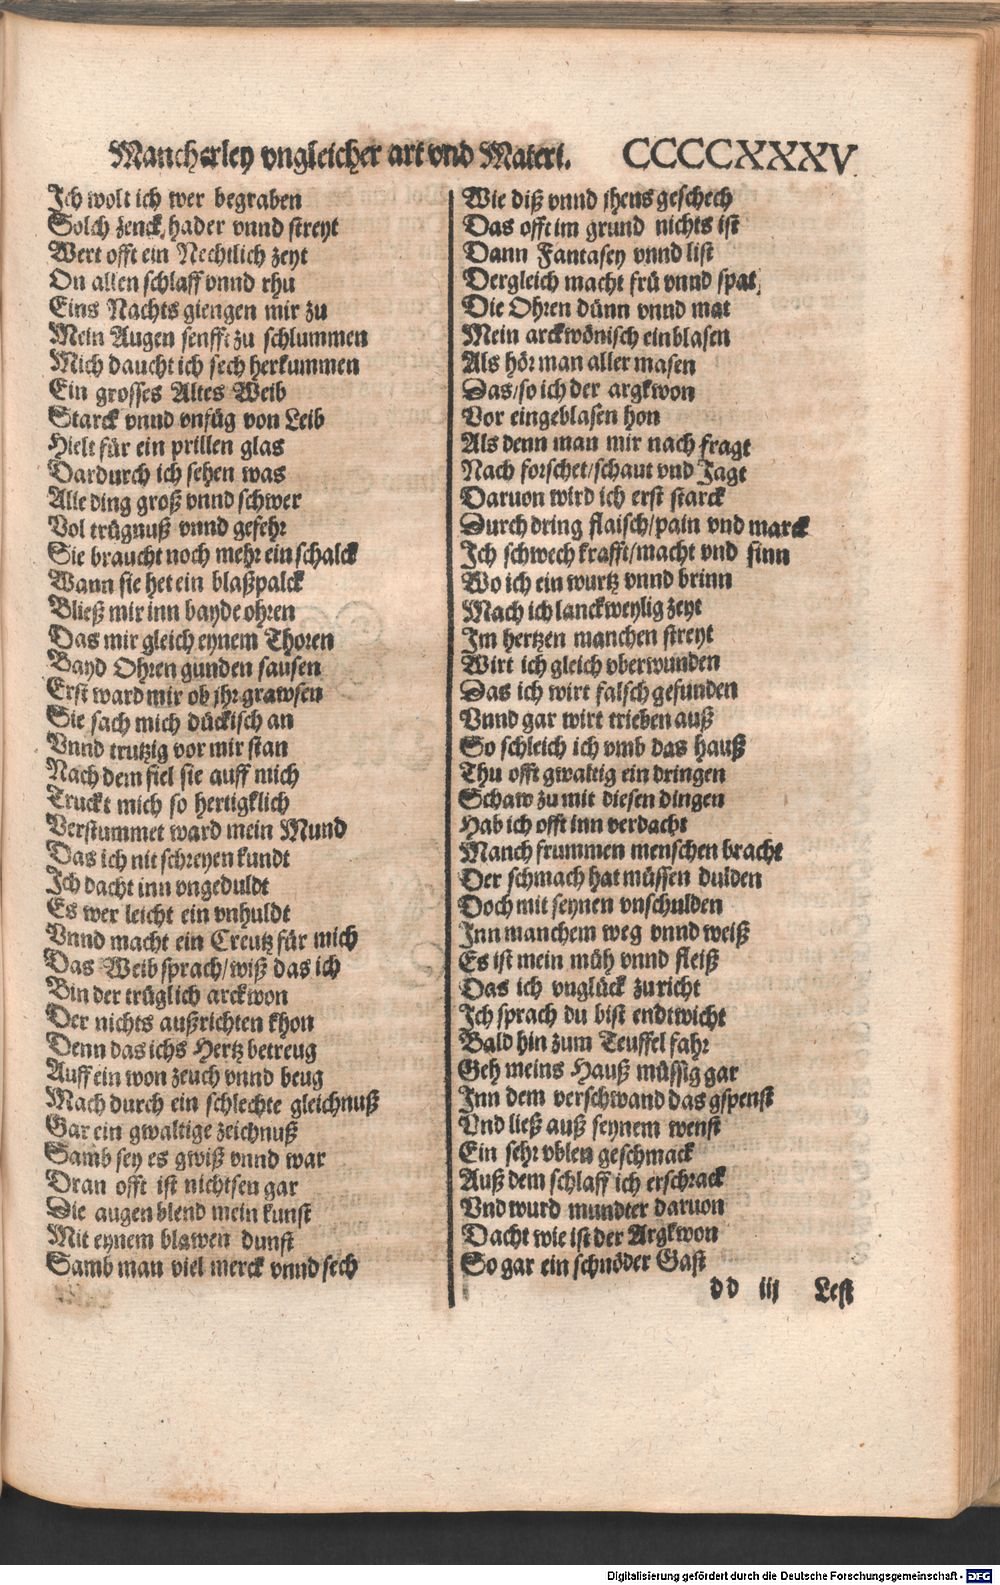 Mancherley vngleicher art vnd Materi. CCCCXXXV
Ich wolt ich wer begraben
Solch zenck, hader vnnd streyt
Wert offt ein Nechtlich zeyt
On allen schlaff vnnd rhu
Eins Nachts giengen mir zu
Mein Augen senfft zu schlummen
Mich daucht ich sech herkummen
Ein grosses Altes Weib
Starck vnnd vnfüg von Leib
Hielt für ein prillen glas
Dardurch ich sehen was
Alle ding groß vnnd schwer
Vol trügnuß vnnd gefehr
Sie braucht noch mehr ein schalck
Wann sie het ein blaßpalck
Bließ mir inn bayde ohren
Das mir gleich eynem Thoren
Bayd Ohren gunden sausen
Erst ward mir ob ihr grawsen
Sie sach mich dückisch an
Vnnd trutzig vor mir stan
Nach dem fiel sie auff mich
Truckt mich so hertigklich
Verstummet ward mein Mund
Das ich nit schreyen kundt
Ich dacht inn vngeduldt
Es wer leicht ein vnhuldt
Vnnd macht ein Creutz für mich
Das Weib sprach/wiß das ich
Bin der trüglich arckwon
Der nichts außrichten khon
Denn das ichs Hertz betreug
Auff ein won zeuch vnnd beug
Mach durch ein schlechte gleichnuß
Gar ein gwaltige zeichnuß
Samb sey es gwiß vnnd war
Dran offt ist nichtsen gar
Die augen blend mein kunst
Mit eynem blawen dunst
Samb man viel merck vnnd sech
Wie diß vnnd ihens geschech
Das offt im grund nichts ist
Dann Fantasey vnnd list
Dergleich macht frü vnnd spat
Die Ohren dünn vnnd mat
Mein arckwönisch einblasen
Als hör man aller masen
Das/so ich der argkwon
Vor eingeblasen hon
Als denn man mir nach fragt
Nach forschet/schaut vnd Jagt
Daruon wird ich erst starck
Durch dring flaisch/pain vnd marck
Ich schwech krafft/macht vnd sinn
Wo ich ein wurtz vnnd brinn
Mach ich lanckweylig zeyt
Im hertzen manchen streyt
Wirt ich gleich vberwunden
Das ich wirt falsch gefunden
Vnnd gar wirt trieben auß
So schleich ich vmb das hauß
Thu offt gwaltig ein dringen
Schaw zu mit diesen dingen
Hab ich offt inn verdacht
Manch frummen menschen bracht
Der schmach hat müssen dulden
Doch mit seynen vnschulden
Inn manchem weg vnnd weiß
Es ist mein müh vnnd fleiß
Das ich vnglück zuricht
Ich sprach du bist endtwicht
Bald hin zum Teuffel fahr
Geh meins Hauß müssig gar
Inn dem verschwand das gspenst
Vnd ließ auß seynem wenst
Ein sehr vblen geschmack
Auß dem schlaff ich erschrack
Vnd wurd mundter daruon
Dacht wie ist der Argkwon
So gar ein schnöder Gast
dd iij Lest
Digitalisierung gefördert durch die Deutsche Forschungsgemeinschaft - DFG